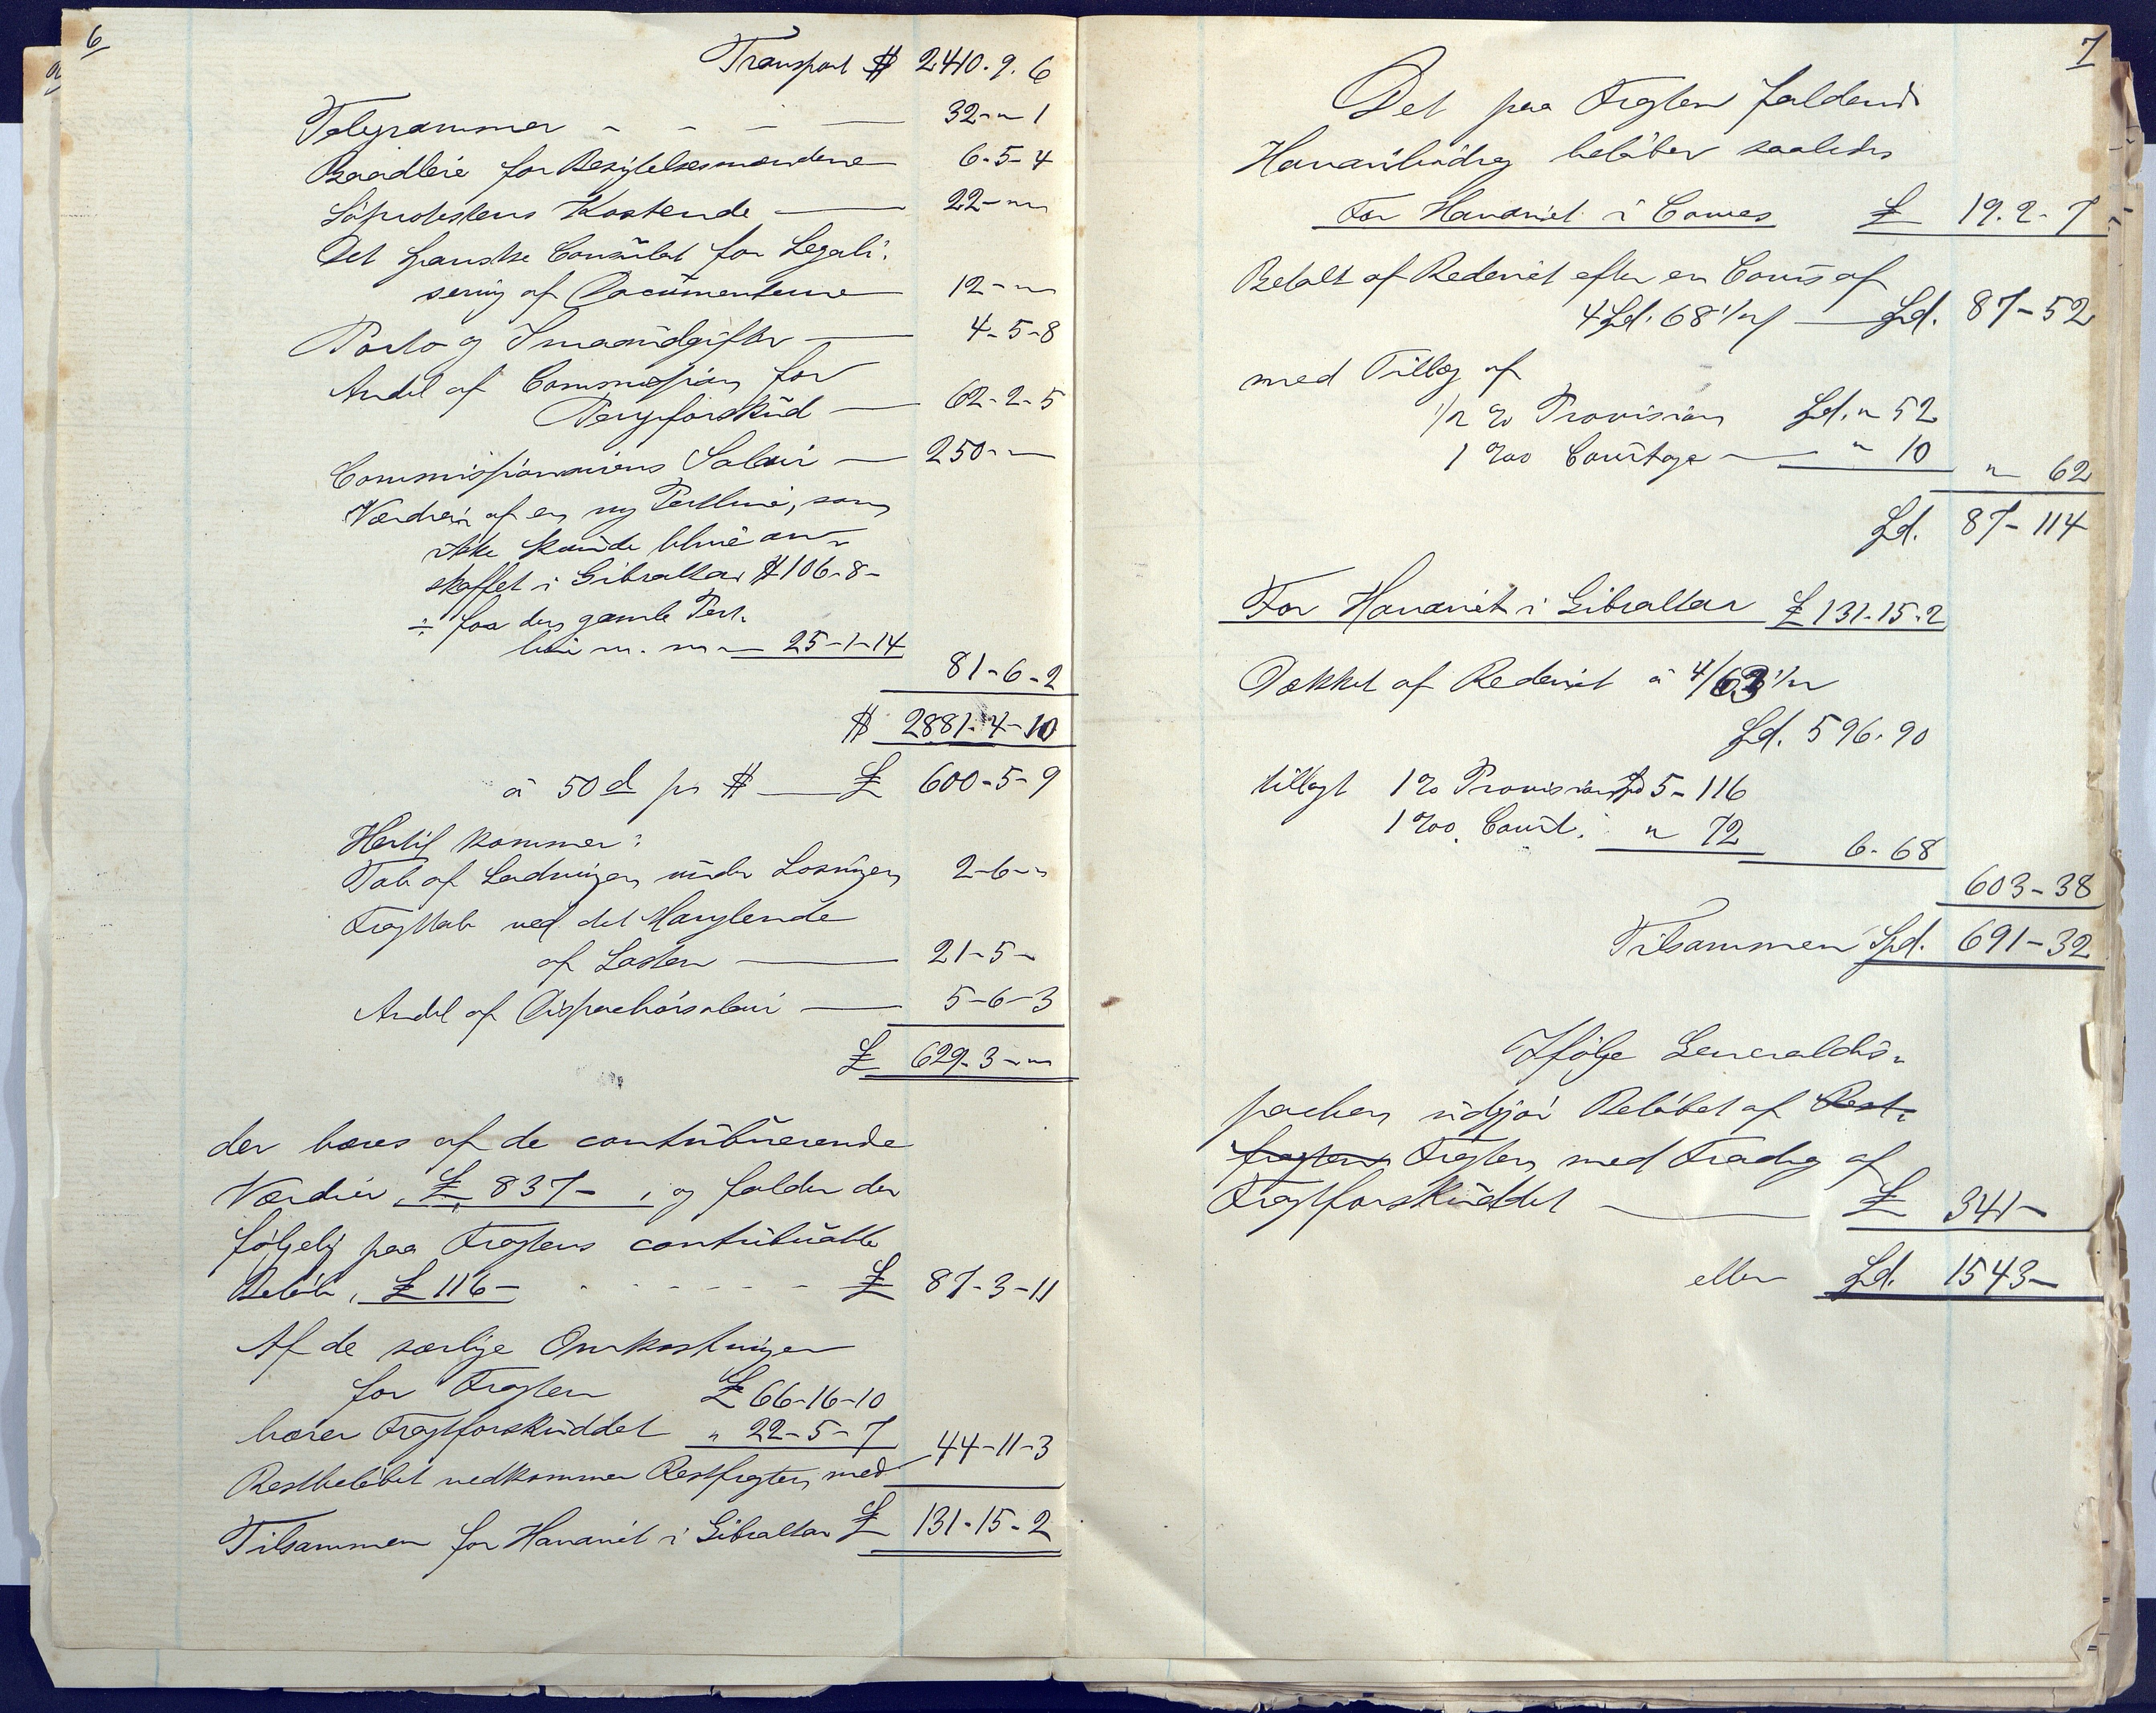 6
Transport $ 2410. 9. 6
Telegrammer - - - — 32-"-1
Baadleie for Besigtelsesmændene — 6-5-4
Söprotestens Kostende — 22-"-"
Det spanske Consulat for Legali-
sering af Documenterne — 12-"-"
Porto og Smaaudgifter — 4-5-8
Andel af Commission for
Pengeforskud — 62-2-5
Commissionairens Salair — 250-"-"
Værdien af en ny Pertline, som
ikke kunde blive an-
skaffet i Gibraltar $ 106-8-
÷ for den gamle Pert-
line m. m — 25-1-14
81-6-2
$ 2881-4-10
à 50 d pr $ — £ 600-5-9
Hertil kommer:
Tab af Ladningen under Losningen 2-6-"
Fragttab ved det Manglende
af Lasten — 21-5-"
Andel af Dispachörsalair — 5-6-3
£ 629-3-"
der bæres af de contribuerende
Værdier, £ 837-, og falder der
følgelig paa Fragtens contribuable
Beløb, £ 116- - - - - £ 87-3-11
Af de særlige Omkostninger
for Fragten £ 66-16-10
bærer Fragtforskuddet " 22-5-7
Restbeløbet vedkommer Restfragten med 44-11-3
Tilsammen for Havariet i Gibraltar £ 131-15-2
7
Det paa Fragten faldende
Havaribidrag beløber saaledes
For Havariet i Cowes £ 19. 2- 7
Betalt af Rederiet efter en Cours af
4 Spd. 68 1/2 ß — Spd. 87-52
med Tillæg af
1/2 % Provision Spd. " 52
1 ‰ Courtage — " 10
" 62
Spd. 87-114
For Havariet i Gibraltar £ 131-15-2
Dækket af Rederiet à 4/63 1/2
Spd. 596-90
tillagt 1 % Provision Spd 5-116
1 ‰ Court. " 72
6-68
603-38
Tilsammen Spd. 691-32
Ifølge Generaldis-
pachen udgjør Beløbet af Rest-
fragten Fragten med Fradrag af
Fragtforskuddet — £ 341-
eller Spd. 1543-